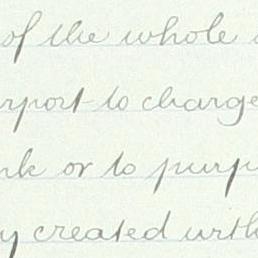 of the whole
rport to charge
nk or to purp
y created with